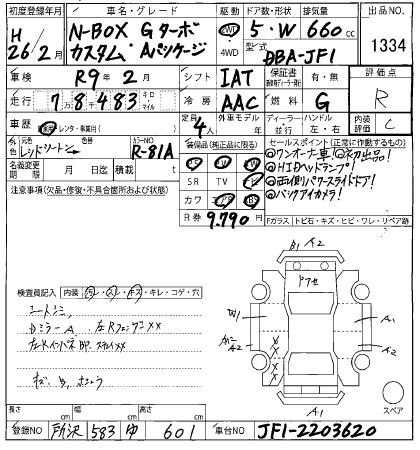 初度登録年月 車名・グレード 駆動 ドア数・形状 排気量 出品NO
H 26/2月 N-BOX Gターボ 2WD 5・W 660cc 1334
カスタム Aパッケージ 4WD 型式 DBA-JF1
車検 R9年2月 シフト IAT 保証書 有・無 評価点
走行 78483 キロ マイル 冷房 AAC 燃料 G R
車歴 自家用・レンタ・事業用( ) 定員 4人 外車モデル 年 ディーラー・並行 ハンドル 左・右 内装評価 C
外色 元色 レッド 色番 カラーNO R-81A
装備品(純正品に限る) セールスポイント(正常に作動するもの)
名義変更期限 月 日 積載 t
PS PW ①ワンオーナー車!①初出品!
SR TV ナビ ①HIDヘッドランプ!
注意事項(欠品・修復・不具合箇所および状態)
カワ エアB ABS ①両側パワースライドドア!
①バックアイカメラ!
R券 9,790円
Fガラス トビ石・キズ・ヒビ・ワレ・リペア跡
B1 A2
検査員記入 内装 汚レ・スレ・キズ・キレ・コゲ・穴
シートシミ
DミラーA 左Rフェンダ××
A1 A2 A2
A1
スペア
長さ cm 幅 cm 高さ cm
登録NO 所沢 583 ゆ 601 車台NO JF1-2203620